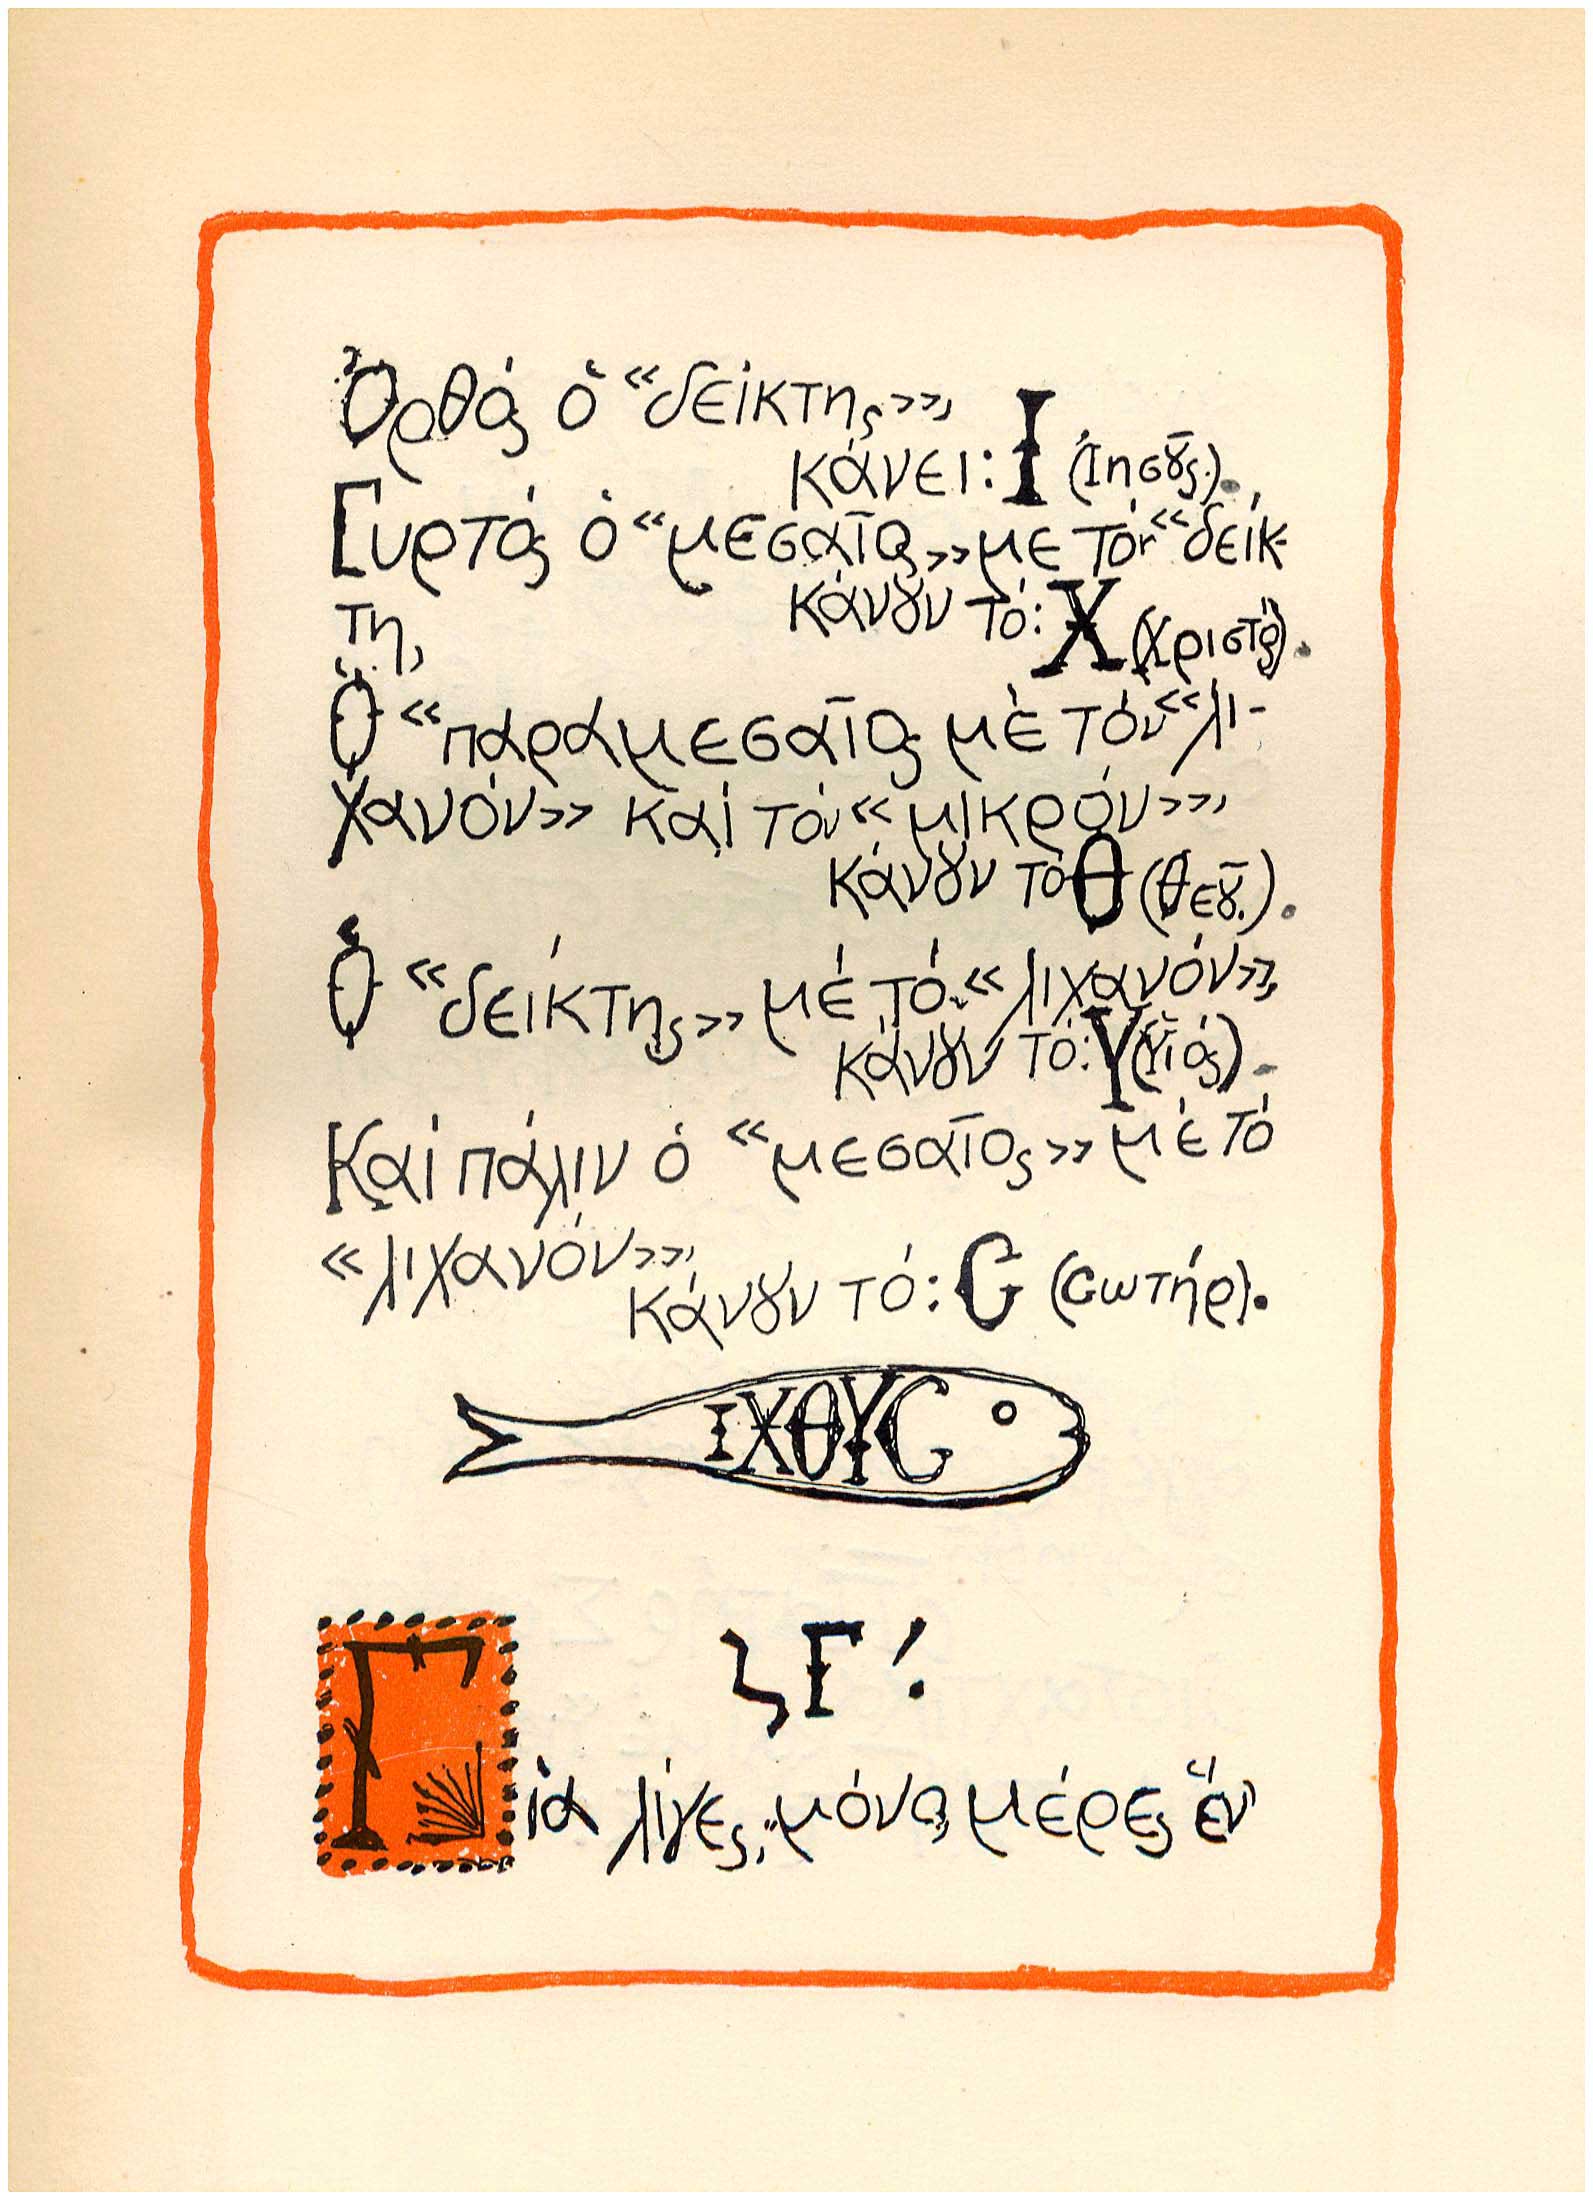 Ὀρθός ὁ «δείκτης»,
κάνει: Ι (Ἰησοῦς).
Γυρτός ὁ «μεσαῖος» με τόν «δείκ-
τη,
κάνουν τό: Χ (Χριστός).
Ὁ «παραμεσαῖος μέ τόν «λι-
χανόν» καί τόν «μικρόν»,
κάνουν τό Θ (Θεοῦ.).
Ὁ «δείκτης» μέ τό «λιχανόν»,
κάνουν τό: Υ (Υἱός).
Καί πάλιν ὁ «μεσαῖος» μέ τό
«λιχανόν»,
κάνουν τό: C (Cωτήρ).
ΙΧΘΥC
ϛΓ!
Γιά λίγες, μόνο, μέρες ἕν